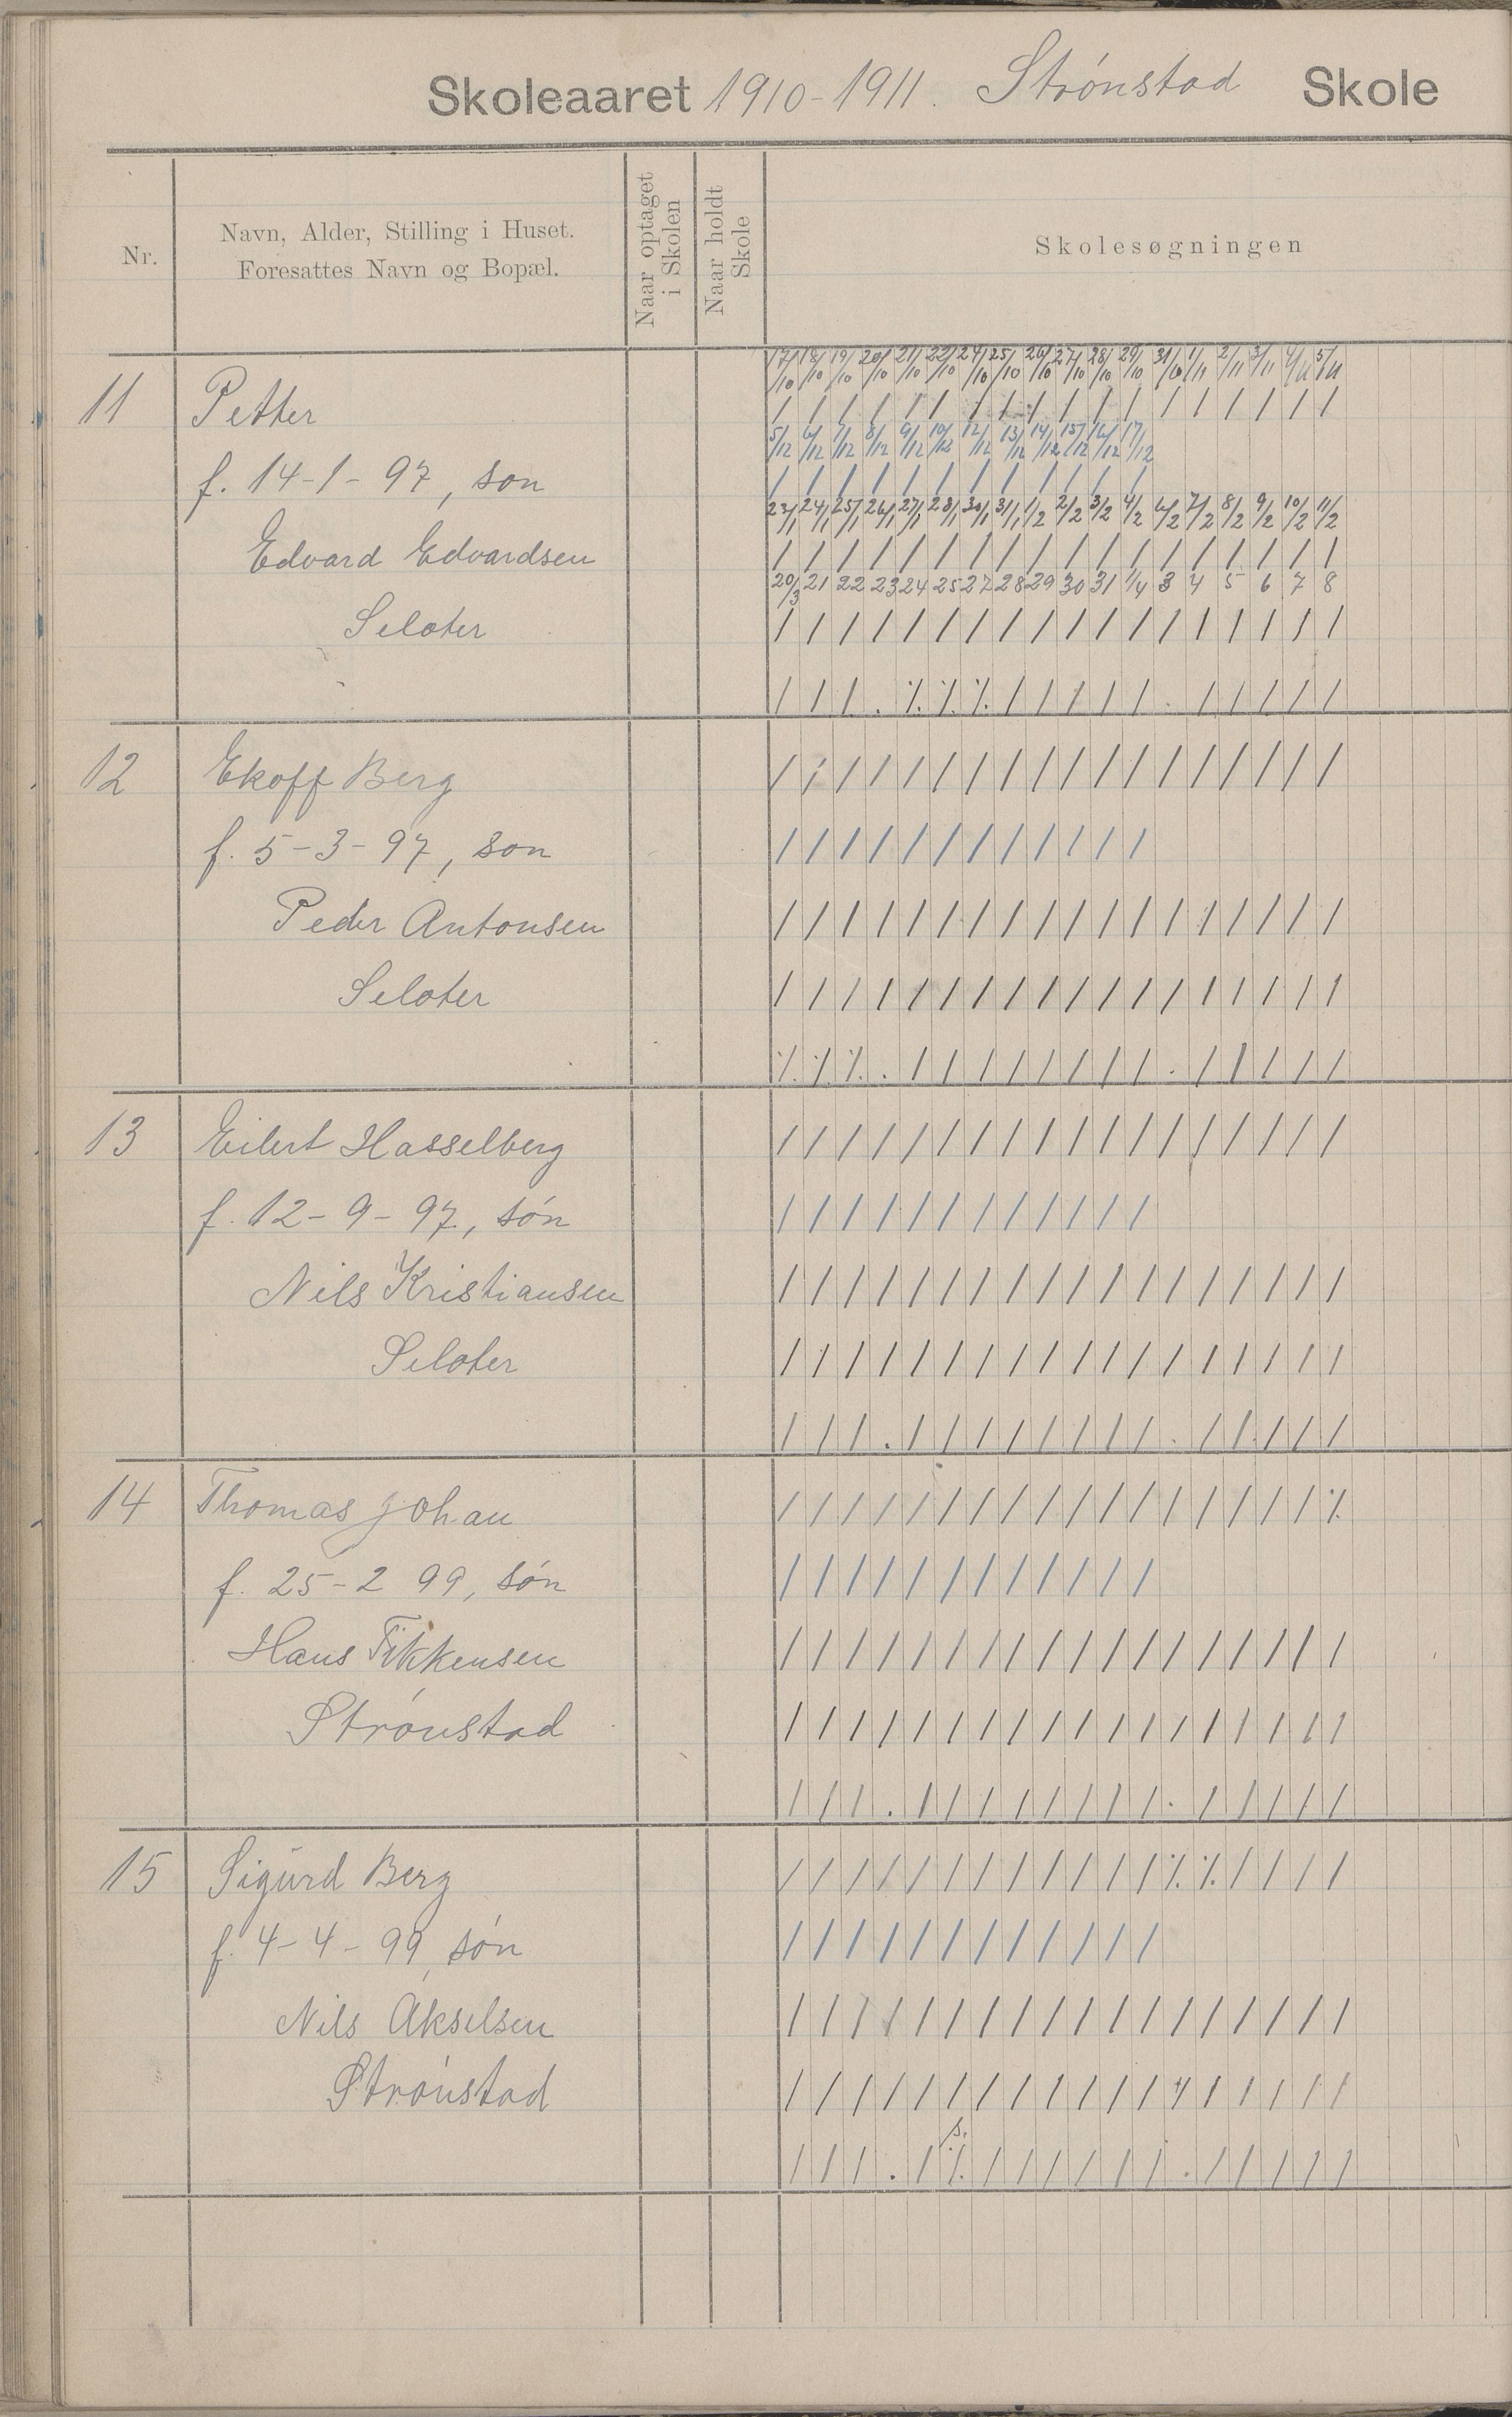 Skoleaaret 1910-1911. Strønstad Skole
Nr.
Navn, Alder, Stilling i Huset.
Foresattes Navn og Bopæl.
Naar optaget
i Skolen
Naar holdt
Skole
Skolesøgningen
17/10 18/10 19/10 20/10 21/10 22/10 24/10 25/10 26/10 27/10 28/10 29/10 31/10 1/11 2/11 3/11 4/11 5/11
11 Petter / / / / / / / / / / / / / / / / / /
5/12 6/12 7/12 8/12 9/12 10/12 12/12 13/12 14/12 15/12 16/12 17/12
f. 14-1-97, son / / / / / / / / / / / /
23/1 24/1 25/1 26/1 27/1 28/1 30/1 31/1 1/2 2/2 3/2 4/2 6/2 7/2 8/2 9/2 10/2 11/2
Edvard Edvardsen / / / / / / / / / / / / / / / / / /
20/3 21 22 23 24 25 27 28 29 30 31 1/4 3 4 5 6 7 8
Seloter / / / / / / / / / / / / / / / / / /
/ / / . ٪ ٪ ٪ / / / / / . / / / / /
12 Ekoff Berg / / / / / / / / / / / / / / / / / /
f. 5-3-97, son / / / / / / / / / / / /
Peder Antonsen / / / / / / / / / / / / / / / / / /
Seloter / / / / / / / / / / / / / / / / / /
٪ ٪ ٪ . / / / / / / / / . / / / / /
13 Eilert Hasselberg / / / / / / / / / / / / / / / / / /
f. 12-9-97, søn / / / / / / / / / / / /
Nils Kristiansen / / / / / / / / / / / / / / / / / /
Seloter / / / / / / / / / / / / / / / / / /
/ / / . / / / / / / / / . / / / / /
14 Thomas Johan / / / / / / / / / / / / / / / / / ٪
f. 25-2 99, søn / / / / / / / / / / / /
Hans Fikkensen / / / / / / / / / / / / / / / / / /
Strønstad / / / / / / / / / / / / / / / / / /
/ / / . / / / / / / / / . / / / / /
15 Sigurd Berg / / / / / / / / / / / / ٪ ٪ / / / /
f. 4-4-99, søn / / / / / / / / / / / /
Nils Akselsen / / / / / / / / / / / / / / / / / /
Strønstad / / / / / / / / / / / / / / / / / /
s.
/ / / . / ٪ / / / / / / . / / / / /